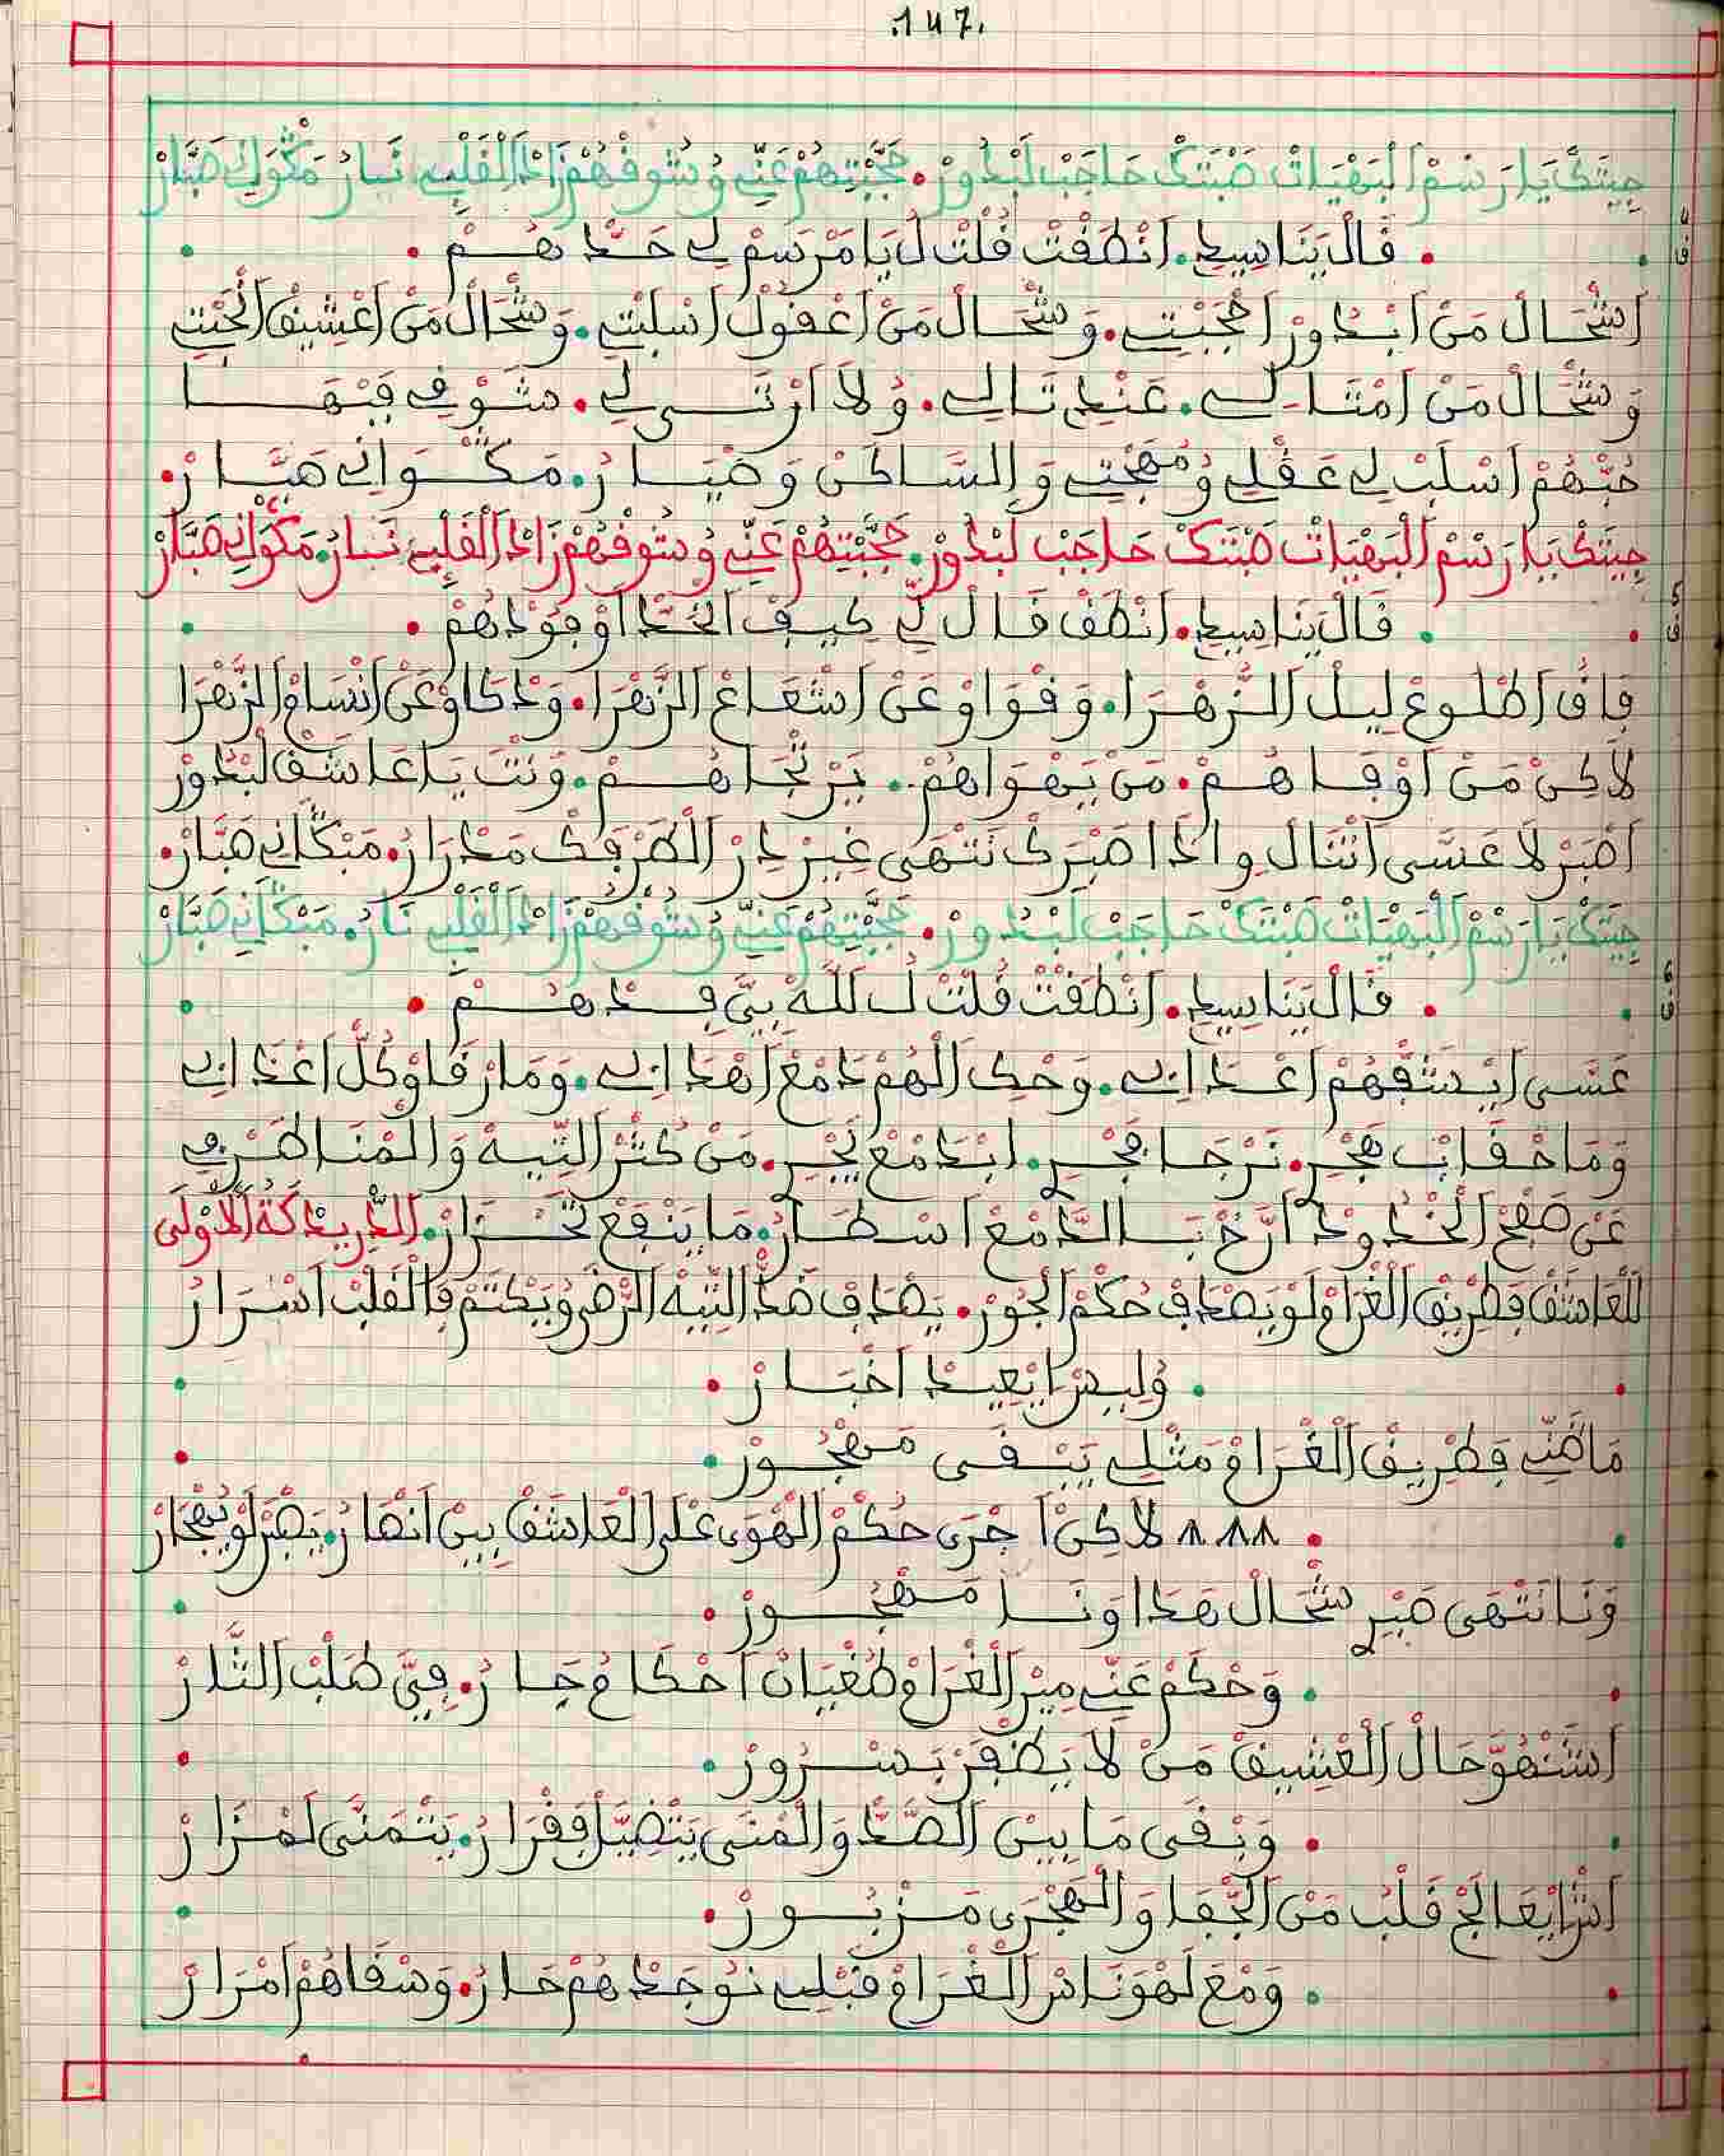 .147.
جِيتَكْ يَا رَسْمْ الْبَهْيَاتْ صَبْتَكْ حَاجَبْ لَبْدُورْ. حَجَّبْتِهُمْ عَنِّي وُشُوقْهُمْ زَادْ الْقَلْبِي نَارُ مَكْوَانِي صَبَّارْ
ق4 . قَالْ يَنَا سِيدِ. اَنْطَقْتْ قُلْتْ لُ يَا مَرْسَمْ لِي حَدْهُمْ .
اَشْحَالْ مَنْ اَبْدُورْ اَحْجَبْتِ. وَشْحَالْ مَنْ اَعْقُولْ اَسْلَبْتِ. وَشْحَالْ مَنْ اَعْشِيقْ اَنْحَبْتِ
وَشْحَالْ مَنْ اَمْتَالِي. عَنْدِ تَالِي. وُلَا اَرْتَى لِي. مَشَوْقِ فِبْهَا
حُبْهُمْ اَسْلَبْ لِي عَقْلِي وُمُهْجْتِ وَالسَّاكَنْ وَضْيَارُ. مَكْوَانِي صَبَّارْ.
جِيتَكْ يَا رَسْمْ الْبَهْيَاتْ صَبْتَكْ حَاجَبْ لَبْدُورْ. حَجَّبْتِهُمْ عَنِّي وُشُوقْهُمْ زَادْ الْقَلْبِي نَارُ. مَكْوَانِي صَبَّارْ
ق5 . قَالْ يَنَا سِيدِ. اَنْطَقْ قَالْ لِي كِيفْ اَنْحَدْ اَوْجُودْهُمْ .
فَاقْ اَطْلُوعْ لِيلْ الزُّهْرَا. وَفْوَاوْ عَنْ اَشْعَاعْ الزَّهْرَا. وَدْكَاوْ عَنْ اَنْسَامْ الزَّهْرَا
لَاكِنْ مَنْ اَوْفَاهُمْ. مَنْ يَهْوَاهُمْ. يَرْتْجَاهُمْ. وَنْتَ يَا عَاشَقْ لَبْدُورْ
اَصْبَرْ لَا عَسَّى اَتْنَالْ وِ الَاَ اصَبْرَكْ تَنْتْهَى غِيرْ دِرْ الطَّرْفَكْ مَدْرَارُ. مَبْكَانِي صَبَّارْ.
جِيتَكْ يَا رَسْمْ الْبَهْيَاتْ صَبْتَكْ حَاجَبْ لَبْدُورْ. حَجَّبْتِهُمْ عَنِّي وُشُوقْهُمْ زَادْ الْقَلْبِي نَارُ. مَبْكَانِي صَبَّارْ
ق6 . قَالْ يَنَا سِيدِ. اَنْطَقْتْ قُلْتْ لُ لَلَّهْ بِيَّ فِدْهُمْ .
عَسَّى اَيْشَفْهُمْ اَعْدَابِي. وَحْكِ الْهُمْ دَمْعْ اَهْدَابِي. وَمَارْقَاوْ كُلْ اَعْدَابِي
وَمَاخْفَاتْ هَجْرِ. نَرْجَا فَجْرِ. اَبْدَمْعْ يَجْرِ. مَنْ كُثْرْ التِّيهْ وَالْمْنَاطَرْ فِي
عَنْ صَفْحْ الْخْدُودْ اَرَّخْ بَالدَّمْعْ اَسْطَارُ. مَا يَنْفَعْ تَحْرَارْ. الدَّرِيدْكَةُ الْأُوْلَى
لِلْعَاشَقْ فَطْرِيقْ الْغْرَامْ لَوْ يَصْدَافْ حُكْمْ الْجُورْ. يَصْدَافْ ضَدْ التِّيهْ الرّْضَى وُيَكْتَمْ فَالْقَلْبْ اَسْرَارُ
. وُلِيسْ اَيْعِيدْ اَخْبَارْ .
مَاظَنِّي فَطْرِيقْ الْغْرَامْ مَثْلِي يَبْقَى مَهْجُورْ .
. لَاكِنْ اَجْرَى حُكْمْ الْهْوَى عْلَى الْعَاشَقْ بِينْ اَنْصَارُ. يَصْبَرْ لَوْ يُهْجَارْ
وَنَا نَتْهَى صَبْرِ شْحَالْ هَدَا وَنَا مَهْجُورْ .
. وَحْكَمْ عَنِّي مِيرْ الْغْرَامْ طُغْيَانْ اَحْكَامُ جَارُ. فِيَّ طَلْبْ الثَّارْ
اَشْنْهُوَّ حَالْ الْعْشِيقْ مَنْ لَا يَظْفَرْ بَسْرُورْ .
. وَبْقَى مَا بِينْ الصَّدْ وَالْمْنَى يَتْضِيَّلْ فَفْرَارُ. يَتْمَنَّى لَمْزَارْ
اَشْ اَيْعَالَجْ قَلْبُ مَنْ الْجْفَا وَالْهَجْرَى مَزْبُورْ .
. وَمْعَ لَهْوَ نَاسْ الْغْرَامْ قَبْلِي نُوجَدْهُمْ حَارُ. وَسْقَاهُمْ اَمْرَارْ